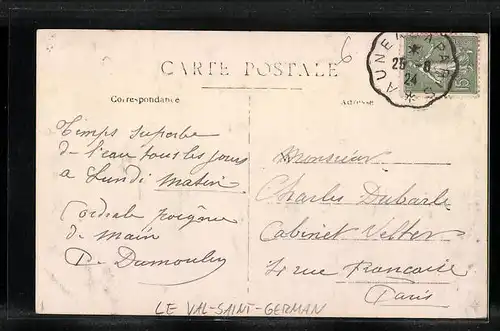 6
CARTE POSTALE
Correspondance
Adresse
AUNEAU A PARIS
25-8
24
15
Temps superbe
de l'eau tous les jours
a Lundi matin
Cordiale poignée
de main
P. Dumoulin
Monsieur
Charles Dubarle
Cabinet
4 rue Française
Paris
LE VAL-SAINT-GERMAN